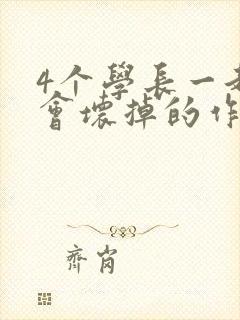 4个學長一
會壞掉的作
齊肖